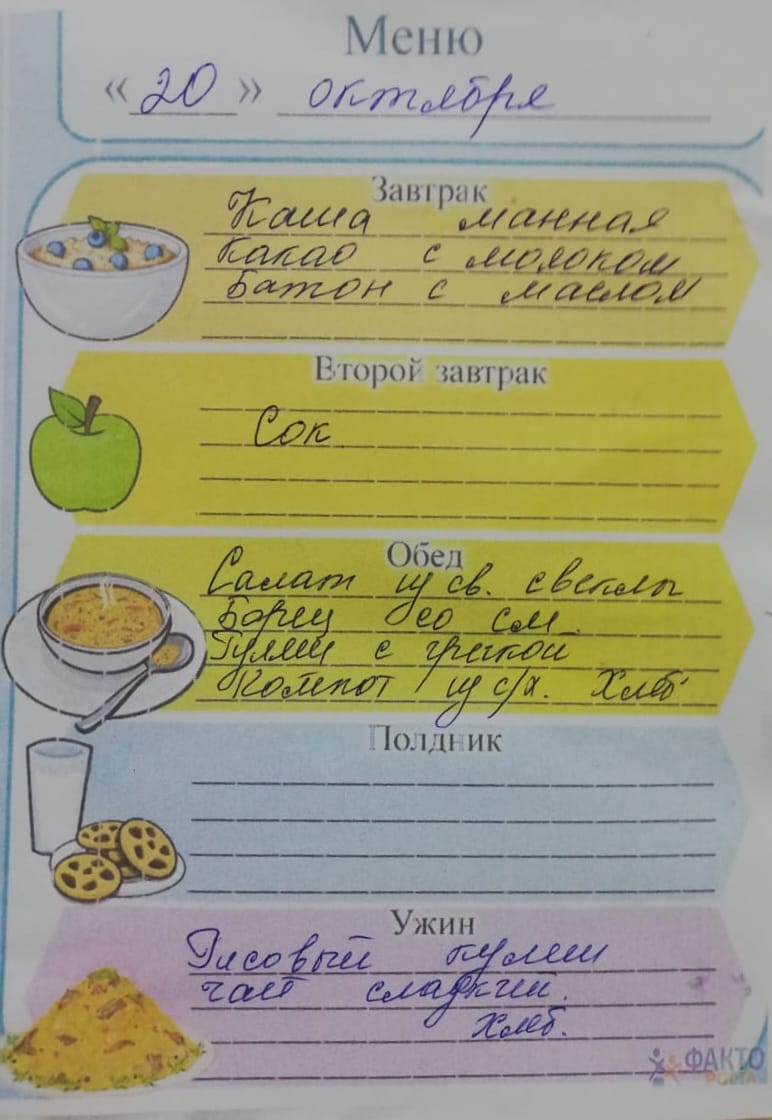 Меню
«20» октября
Завтрак
Каша манная
Какао с молоком
Батон с маслом
Второй завтрак
Сок
Обед
Салат из св. свеклы
Борщ со см.
Гуляш с гречкой
Компот из с/х. Хлеб
Полдник
Ужин
Рисовый кулеш
чай сладкий.
Хлеб.
ФАКТО
РОСТА